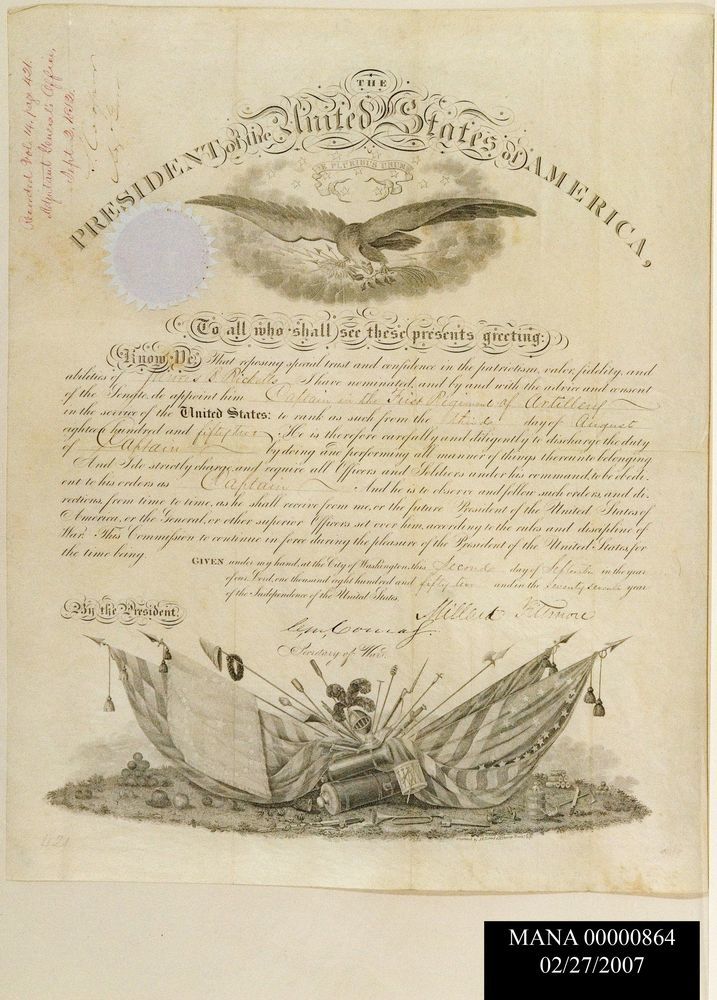 Recorded Vol. 14, page 421.
Adjutant General's Office,
Sept. 2, 1852.
THE
PRESIDENT of the United States of AMERICA,
E PLURIBUS UNUM
To all who shall see these presents greeting:
Know Ye, That reposing special trust and confidence in the patriotism, valor, fidelity, and
abilities of James B Ricketts I have nominated, and by and with the advice and consent
of the Senate, do appoint him Captain in the First Regiment of Artillery
in the service of the United States: to rank as such from the third day of August
eighteen hundred and fifty two; He is therefore carefully and diligently to discharge the duty
of Captain by doing and performing all manner of things thereunto belonging
And I do strictly charge, and require all Officers and Soldiers under his command, to be obedi-
ent to his orders as Captain And he is to observe and follow such orders, and di-
rections, from time to time, as he shall receive from me, or the future President of the United States of
America, or the General, or other superior Officers set over him, according to the rules and discipline of
War. This Commission to continue in force during the pleasure of the President of the United States, for
the time being.
GIVEN under my hand, at the City of Washington, this Second day of September in the year
of our Lord, one thousand eight hundred and fifty two and in the seventy seventh year
of the Independence of the United States.
By the President.
Millard Fillmore
C. M. Conrad
Secretary of War.
421
MANA 00000864
02/27/2007